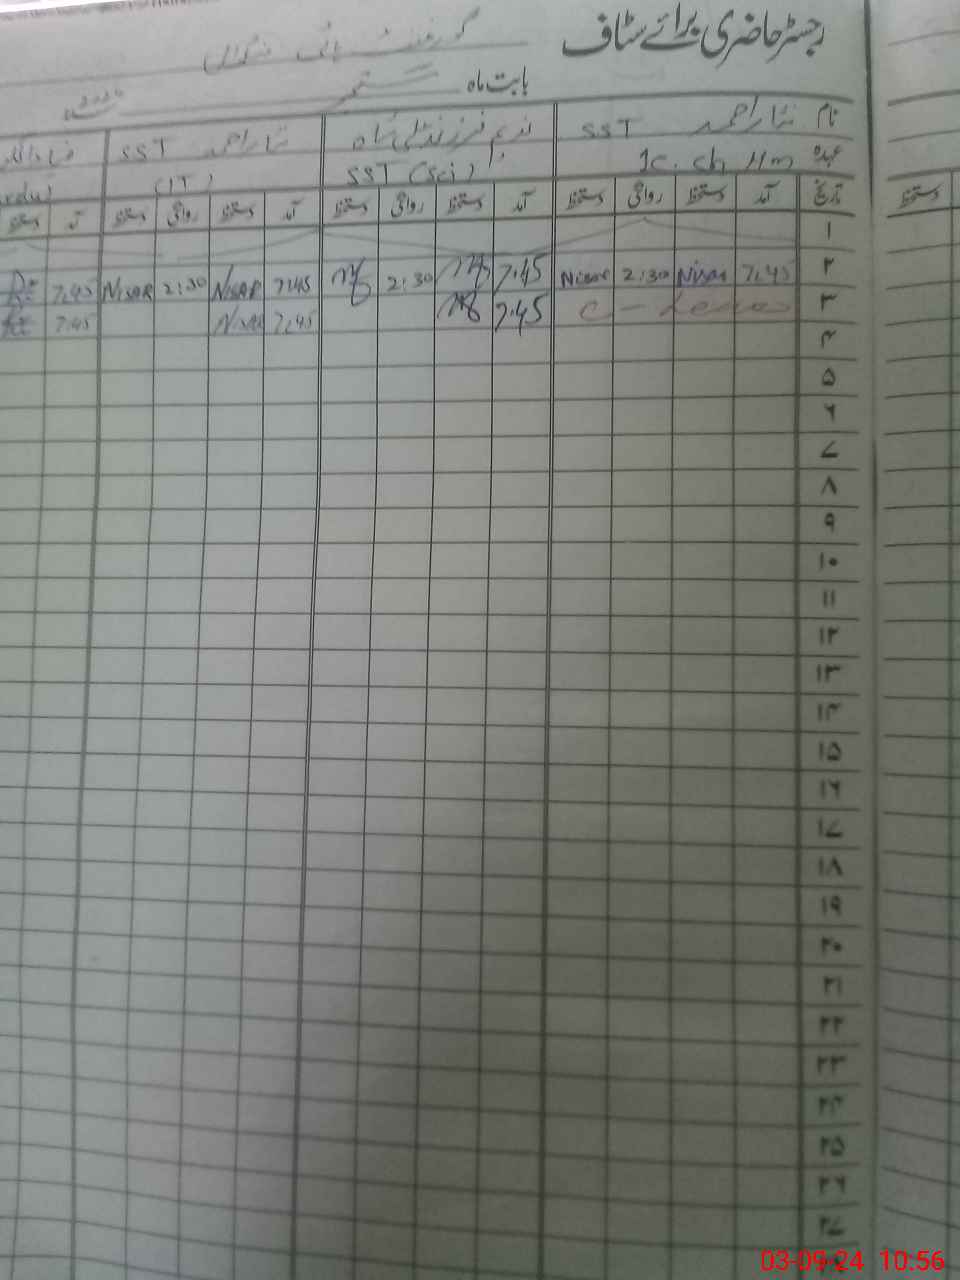 رجسٹر حاضری برائے سٹاف
گورنمنٹ ہائی
بابت ماہ ستمبر
نام نثار احمد SST ندیم فرزند علی شاہ نثار احمد SST
عہدہ Ic. Ch Hm SST (Sci) (IT)
تاریخ آمد دستخط روانگی دستخط آمد دستخط روانگی دستخط آمد دستخط روانگی دستخط آمد دستخط
۱
۲ 7.45 Nisar 2:30 Nisar 7.45 2:30 7.45 NisaR 2:30 NisaR 7.45
۳ C - Leave 7.45 7.45 Nisar 7.45
۴
۵
۶
۷
۸
۹
۱۰
۱۱
۱۲
۱۳
۱۴
۱۵
۱۶
۱۷
۱۸
۱۹
۲۰
۲۱
۲۲
۲۳
۲۴
۲۵
۲۶
۲۷
دستخط
03-09-24 10:56